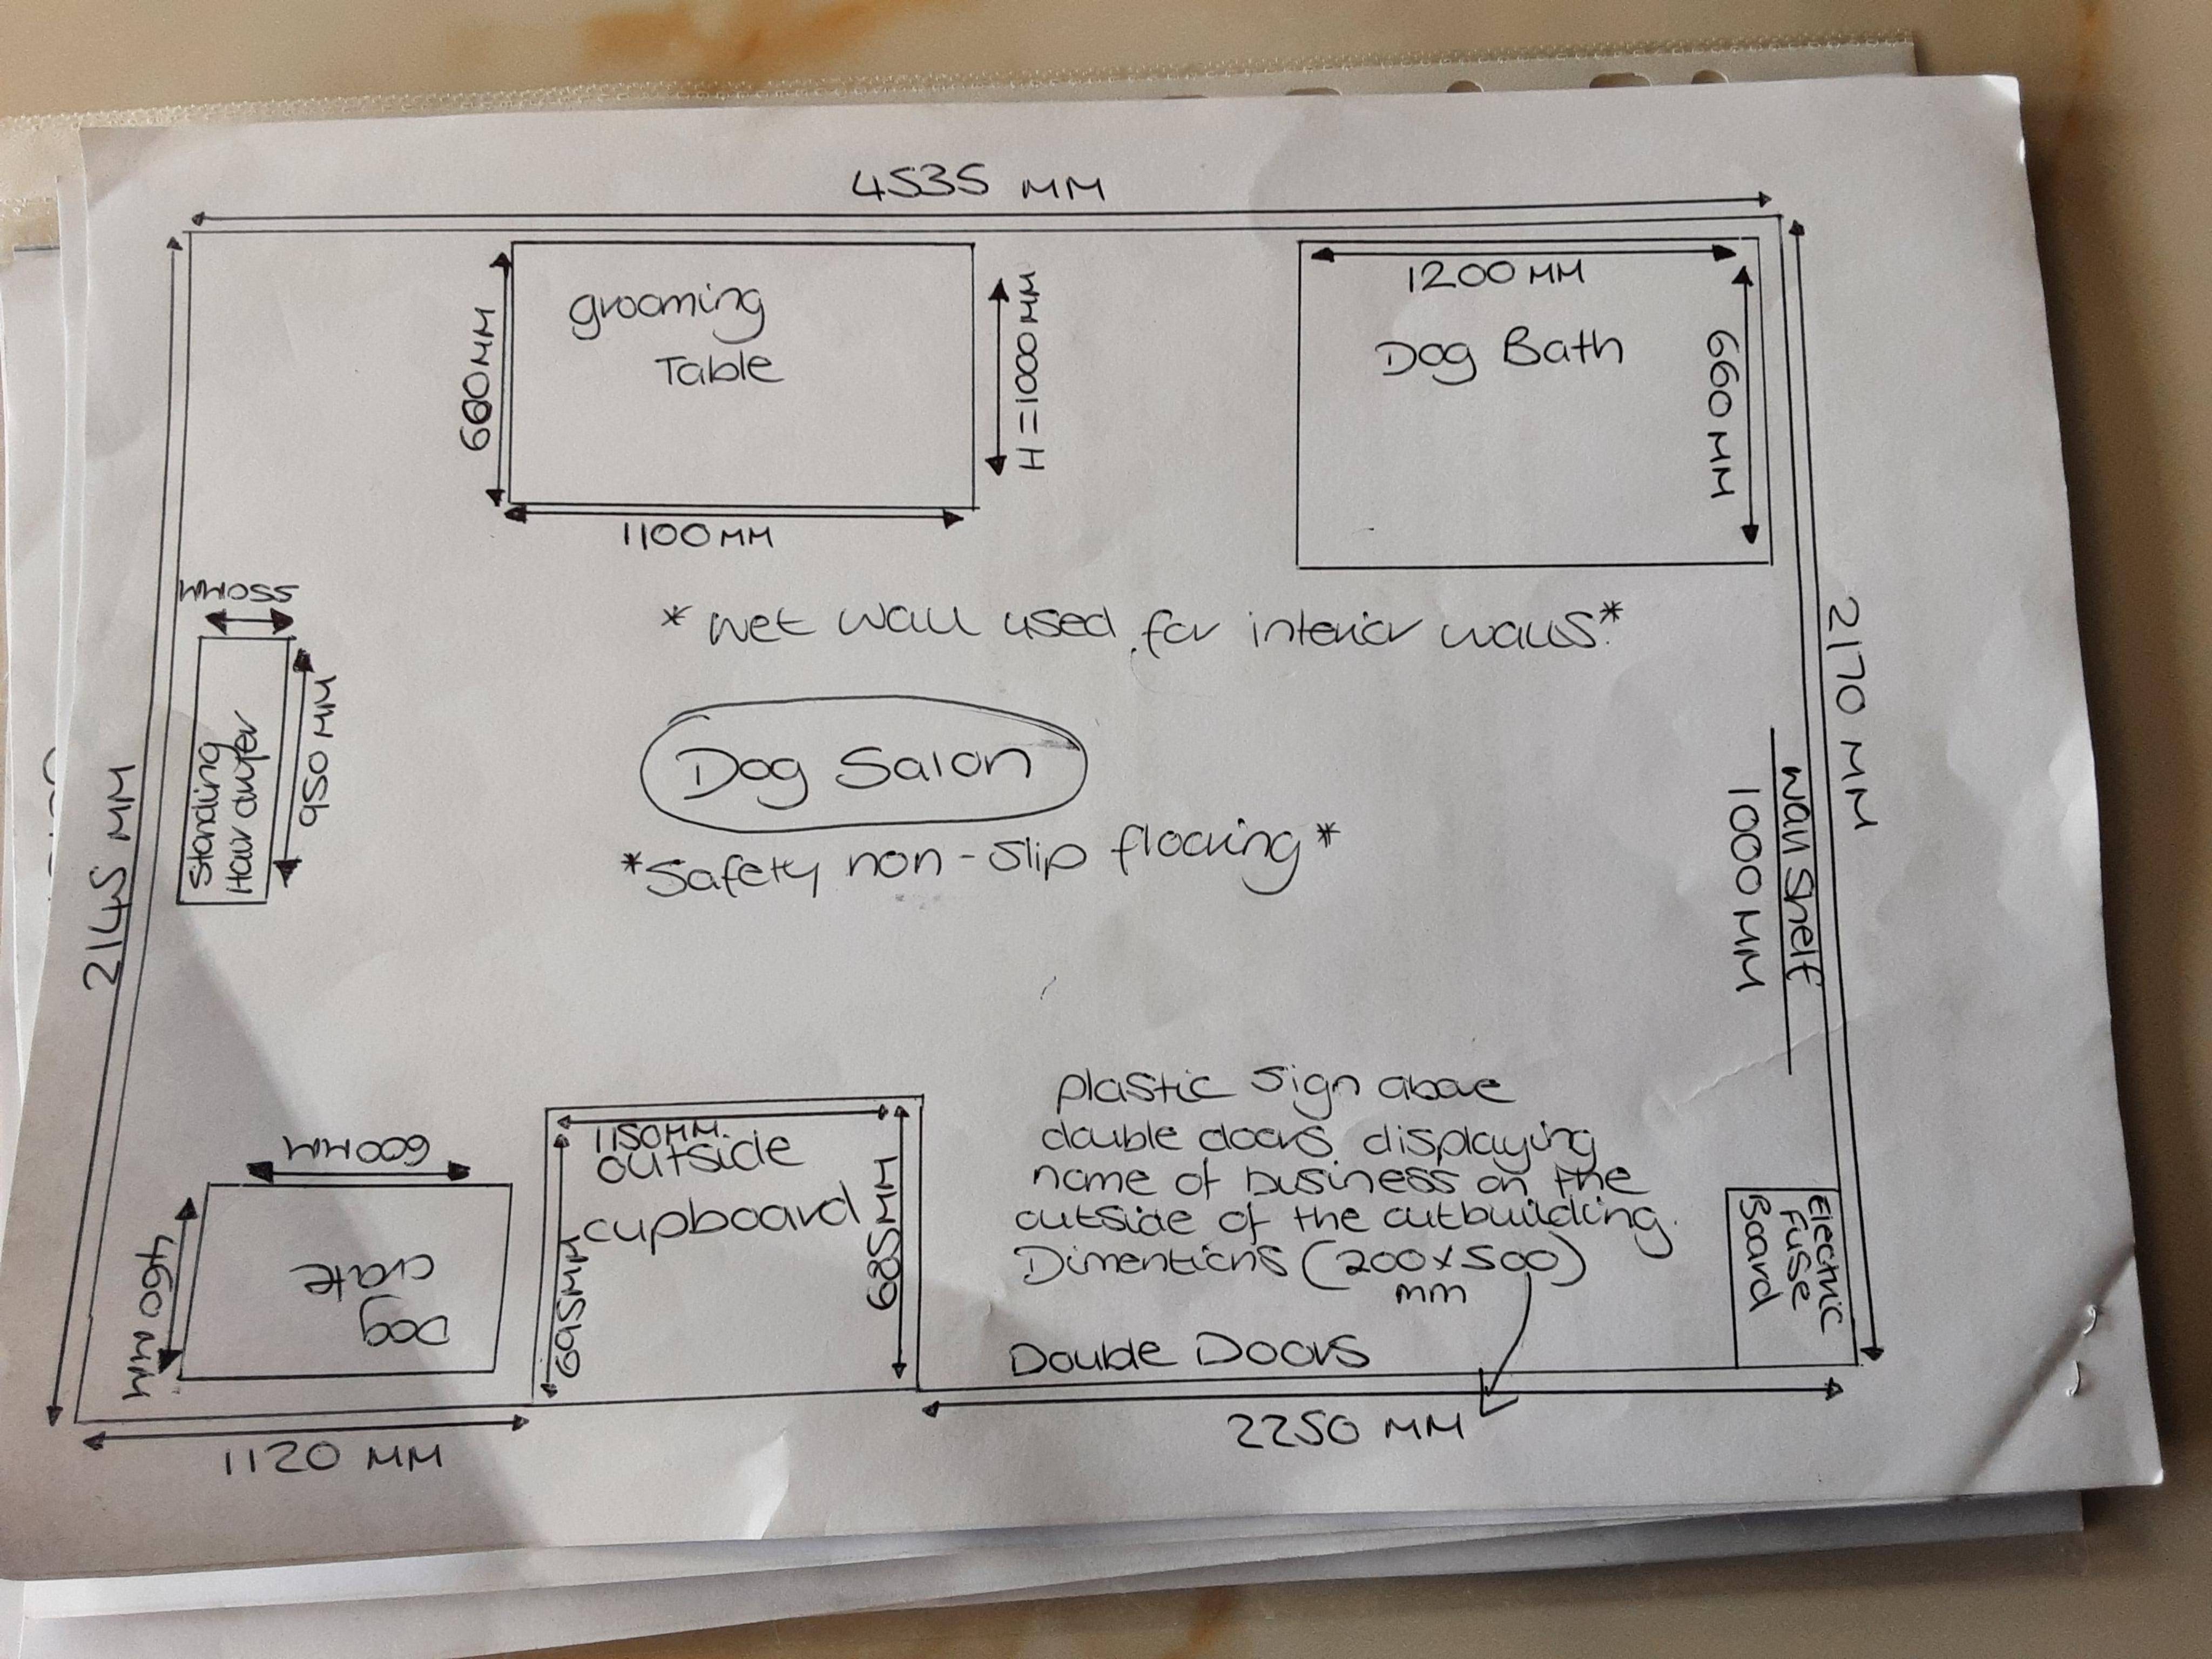 4535 MM
grooming
Table
680MM
H=1000MM
1100MM
1200MM
Dog Bath
660MM
*wet wall used for interior walls*
550MM
Standing
Hair dryer
950 MM
2145 MM
Dog Salon
*Safety non-slip flooring*
2170 MM
Wall Shelf
1000MM
600MM
460MM
Dog
crate
1150MM.
outside
cupboard
695MM
685MM
plastic sign above
double doors displaying
name of business on the
outside of the outbuilding.
Dimentions (200x500)
mm
Electric
Fuse
Board
Double Doors
2250 MM
1120 MM